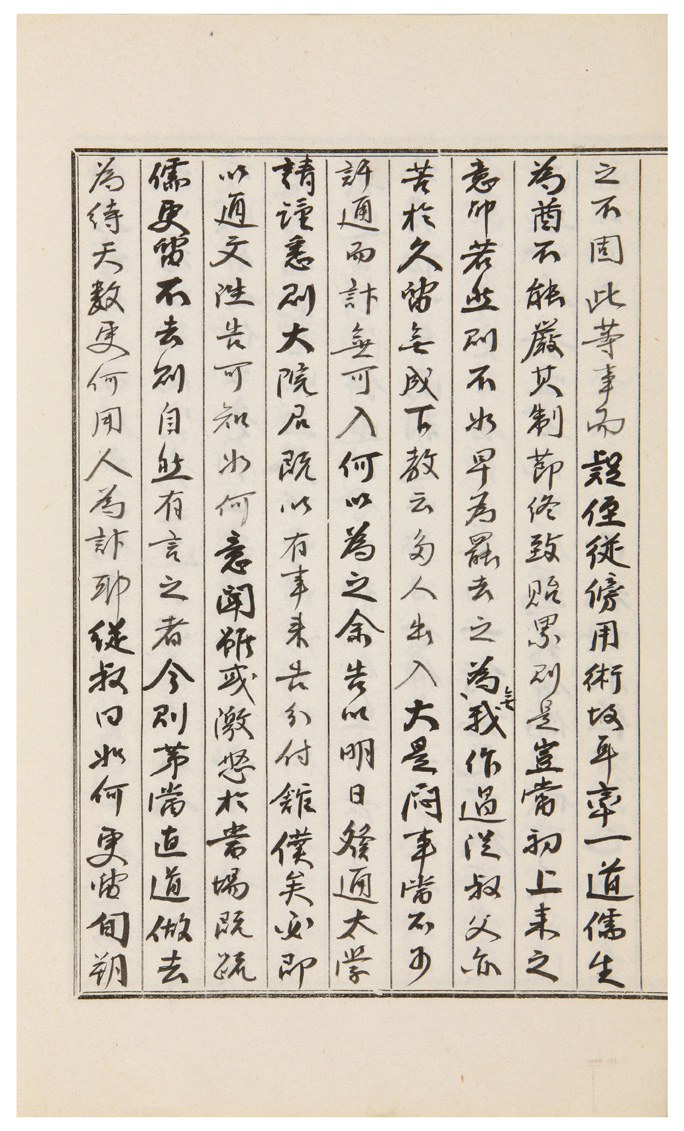 之不固此等事而疑侄從傍用術故耳率一道儒生
為酋不能嚴其制節終致貽累則是豈當初上来之
意仰若此則不如早為罷去之為無我作過從叔父亦
苦於久留無成下教云多人出入大是悶事當不可
許通而訃無可入何以為之余告以明日發通太學
請謹悉則大院君既以有事来告分付雜僕矣必即
以通文陛告可知如何意闻雖或激怒於當場既疏
儒更留不去則自然有言之者今則第當直道做去
為待天數更何用人為訃耶從叔曰如何更留旬朔